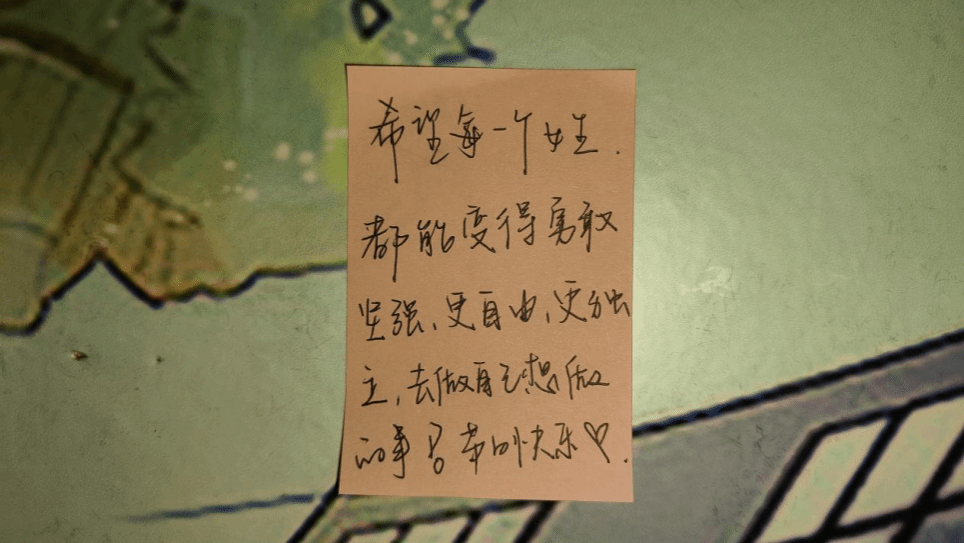 希望每一个女生.
都能变得勇敢
坚强、更自由、更独
立,去做自己想做
的事 常的快乐♡.